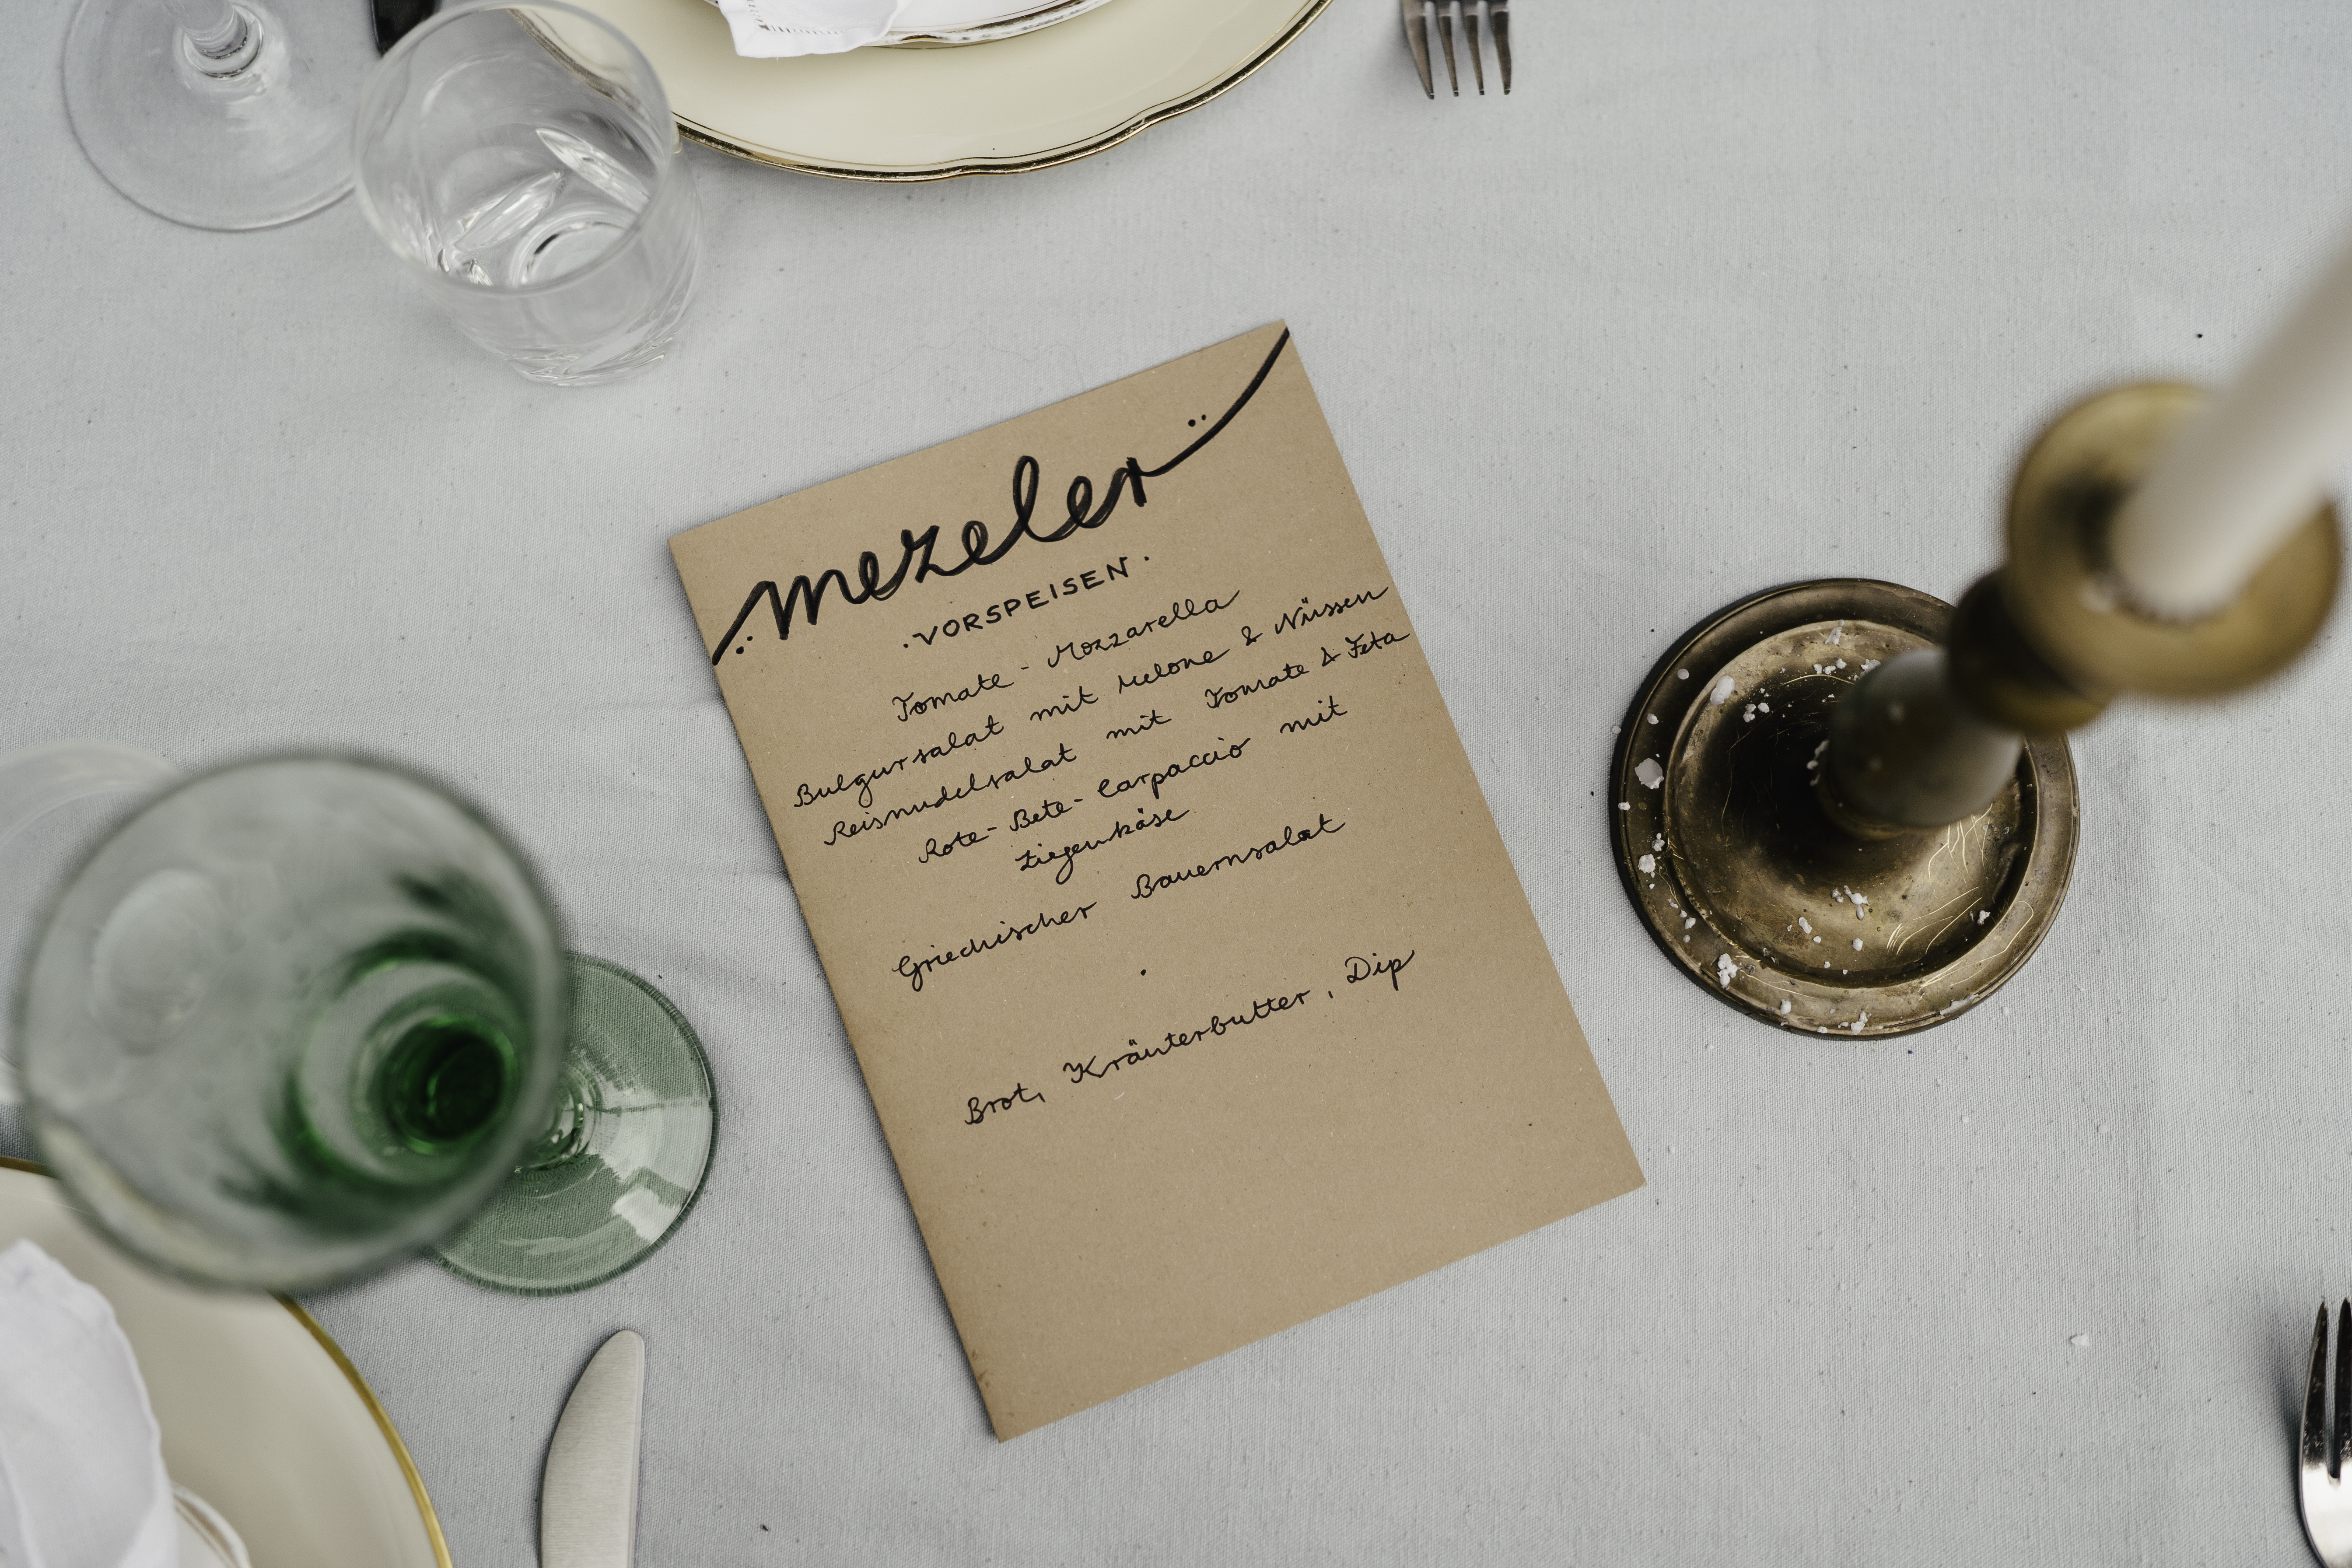 mezeler
·VORSPEISEN·
Tomate - Mozzarella
Bulgursalat mit Melone & Nüssen
Reisnudelsalat mit Tomate & Feta
Rote-Bete-Carpaccio mit
Ziegenkäse
Griechischer Bauernsalat
·
Brot, Kräuterbutter, Dip